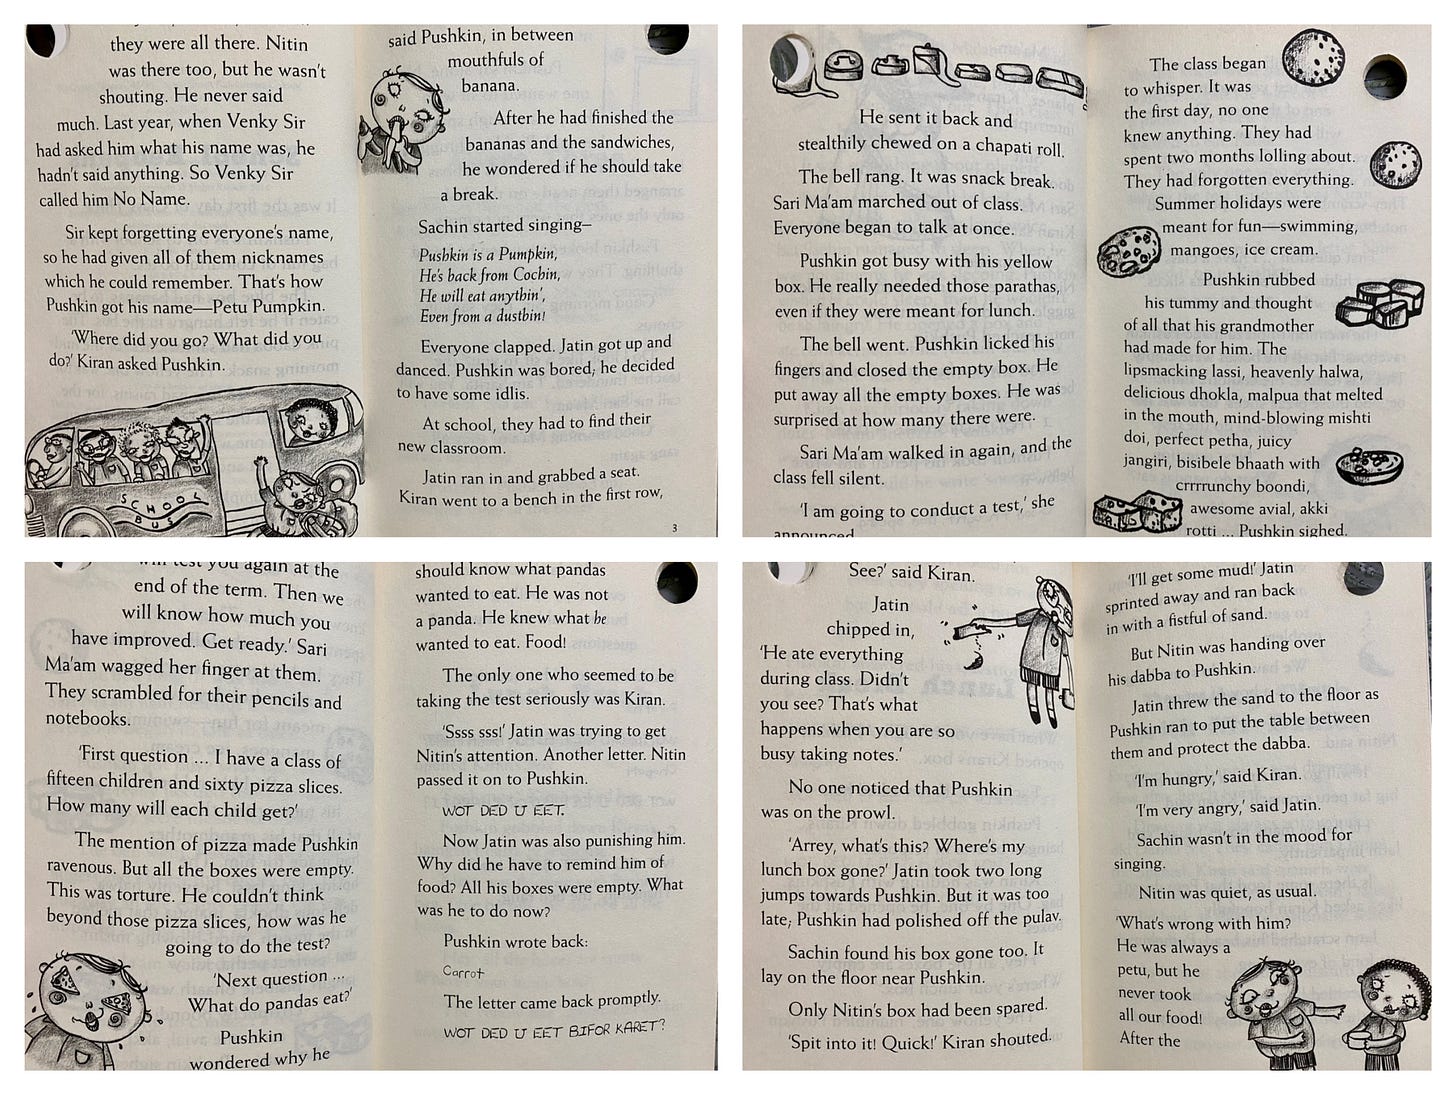 they were all there. Nitin
was there too, but he wasn't
shouting. He never said
much. Last year, when Venky Sir
had asked him what his name was, he
hadn't said anything. So Venky Sir
called him No Name.
Sir kept forgetting everyone's name,
so he had given all of them nicknames
which he could remember. That's how
Pushkin got his name—Petu Pumpkin.
'Where did you go? What did you
do?' Kiran asked Pushkin.
SCHOOL
BUS
said Pushkin, in between
mouthfuls of
banana.
After he had finished the
bananas and the sandwiches,
he wondered if he should take
a break.
Sachin started singing–
Pushkin is a Pumpkin,
He's back from Cochin,
He will eat anythin',
Even from a dustbin!
Everyone clapped. Jatin got up and
danced. Pushkin was bored; he decided
to have some idlis.
At school, they had to find their
new classroom.
Jatin ran in and grabbed a seat.
Kiran went to a bench in the first row,
3
He sent it back and
stealthily chewed on a chapati roll.
The bell rang. It was snack break.
Sari Ma'am marched out of class.
Everyone began to talk at once.
Pushkin got busy with his yellow
box. He really needed those parathas,
even if they were meant for lunch.
The bell went. Pushkin licked his
fingers and closed the empty box. He
put away all the empty boxes. He was
surprised at how many there were.
Sari Ma'am walked in again, and the
class fell silent.
'I am going to conduct a test,' she
announced.
The class began
to whisper. It was
the first day, no one
knew anything. They had
spent two months lolling about.
They had forgotten everything.
Summer holidays were
meant for fun—swimming,
mangoes, ice cream.
Pushkin rubbed
his tummy and thought
of all that his grandmother
had made for him. The
lipsmacking lassi, heavenly halwa,
delicious dhokla, malpua that melted
in the mouth, mind-blowing mishti
doi, perfect petha, juicy
jangiri, bisibele bhaath with
crrrunchy boondi,
awesome avial, akki
rotti ... Pushkin sighed.
will test you again at the
end of the term. Then we
will know how much you
have improved. Get ready.' Sari
Ma'am wagged her finger at them.
They scrambled for their pencils and
notebooks.
'First question ... I have a class of
fifteen children and sixty pizza slices.
How many will each child get?'
The mention of pizza made Pushkin
ravenous. But all the boxes were empty.
This was torture. He couldn't think
beyond those pizza slices, how was he
going to do the test?
'Next question ...
What do pandas eat?'
Pushkin
wondered why he
should know what pandas
wanted to eat. He was not
a panda. He knew what he
wanted to eat. Food!
The only one who seemed to be
taking the test seriously was Kiran.
'Ssss sss!' Jatin was trying to get
Nitin's attention. Another letter. Nitin
passed it on to Pushkin.
WOT DED U EET.
Now Jatin was also punishing him.
Why did he have to remind him of
food? All his boxes were empty. What
was he to do now?
Pushkin wrote back:
Carrot
The letter came back promptly.
WOT DED U EET BIFOR KARET?
See?' said Kiran.
Jatin
chipped in,
'He ate everything
during class. Didn't
you see? That's what
happens when you are so
busy taking notes.'
No one noticed that Pushkin
was on the prowl.
'Arrey, what's this? Where's my
lunch box gone?' Jatin took two long
jumps towards Pushkin. But it was too
late; Pushkin had polished off the pulav.
Sachin found his box gone too. It
lay on the floor near Pushkin.
Only Nitin's box had been spared.
'Spit into it! Quick!' Kiran shouted.
'I'll get some mud!' Jatin
sprinted away and ran back
in with a fistful of sand.
But Nitin was handing over
his dabba to Pushkin.
Jatin threw the sand to the floor as
Pushkin ran to put the table between
them and protect the dabba.
'I'm hungry,' said Kiran.
'I'm very angry,' said Jatin.
Sachin wasn't in the mood for
singing.
Nitin was quiet, as usual.
'What's wrong with him?
He was always a
petu, but he
never took
all our food!
After the